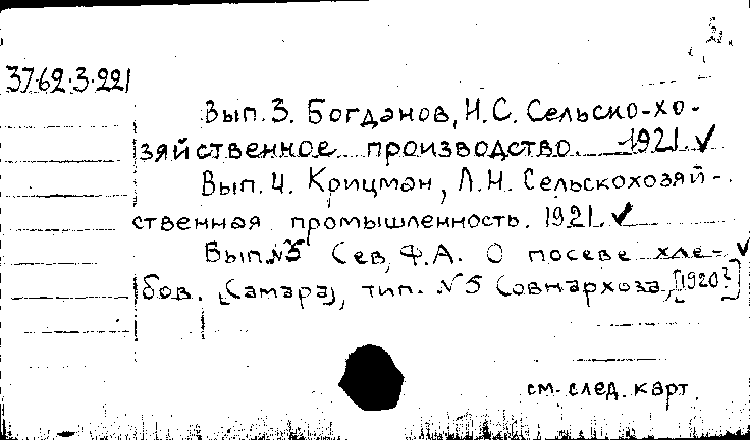 2.
37.62.3.221
Вып.3. Богданов, Н.С. Сельско-хо-
зяйственное производство. 1921.✓
Вып.4. Крицман, Л.Н. Сельскохозяй-
ственная промышленность. 1921.✓
Вып.№5 Сев, Ф.А. О посеве хле-✓
бов. [Самара], тип. №5 Совнархоза, [1920?]
см. след. карт.